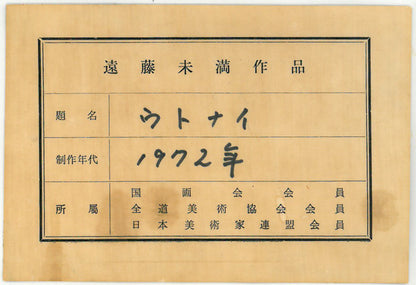 遠藤未満作品
題名 ウトナイ
制作年代 1972年
国画会会員
所属 全道美術協会会員
日本美術家連盟会員